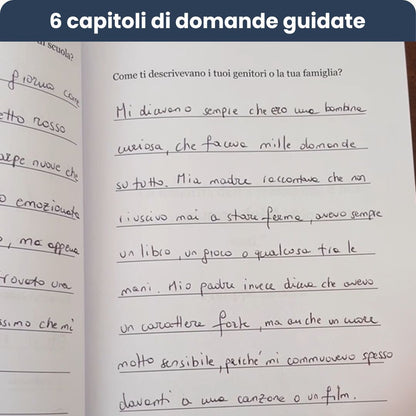 6 capitoli di domande guidate
di scuola?
giorno come
etto rosso
arpe nuove che
o emozionata
o, ma appena
trovato una
ssimo che mi
Come ti descrivevano i tuoi genitori o la tua famiglia?
Mi dicevano sempre che ero una bambina
curiosa, che faceva mille domande
su tutto. Mia madre raccontava che non
riuscivo mai a stare ferma, avevo sempre
un libro, un gioco o qualcosa tra le
mani. Mio padre invece diceva che avevo
un carattere forte, ma anche un cuore
molto sensibile, perché mi commuovevo spesso
davanti a una canzone o un film.